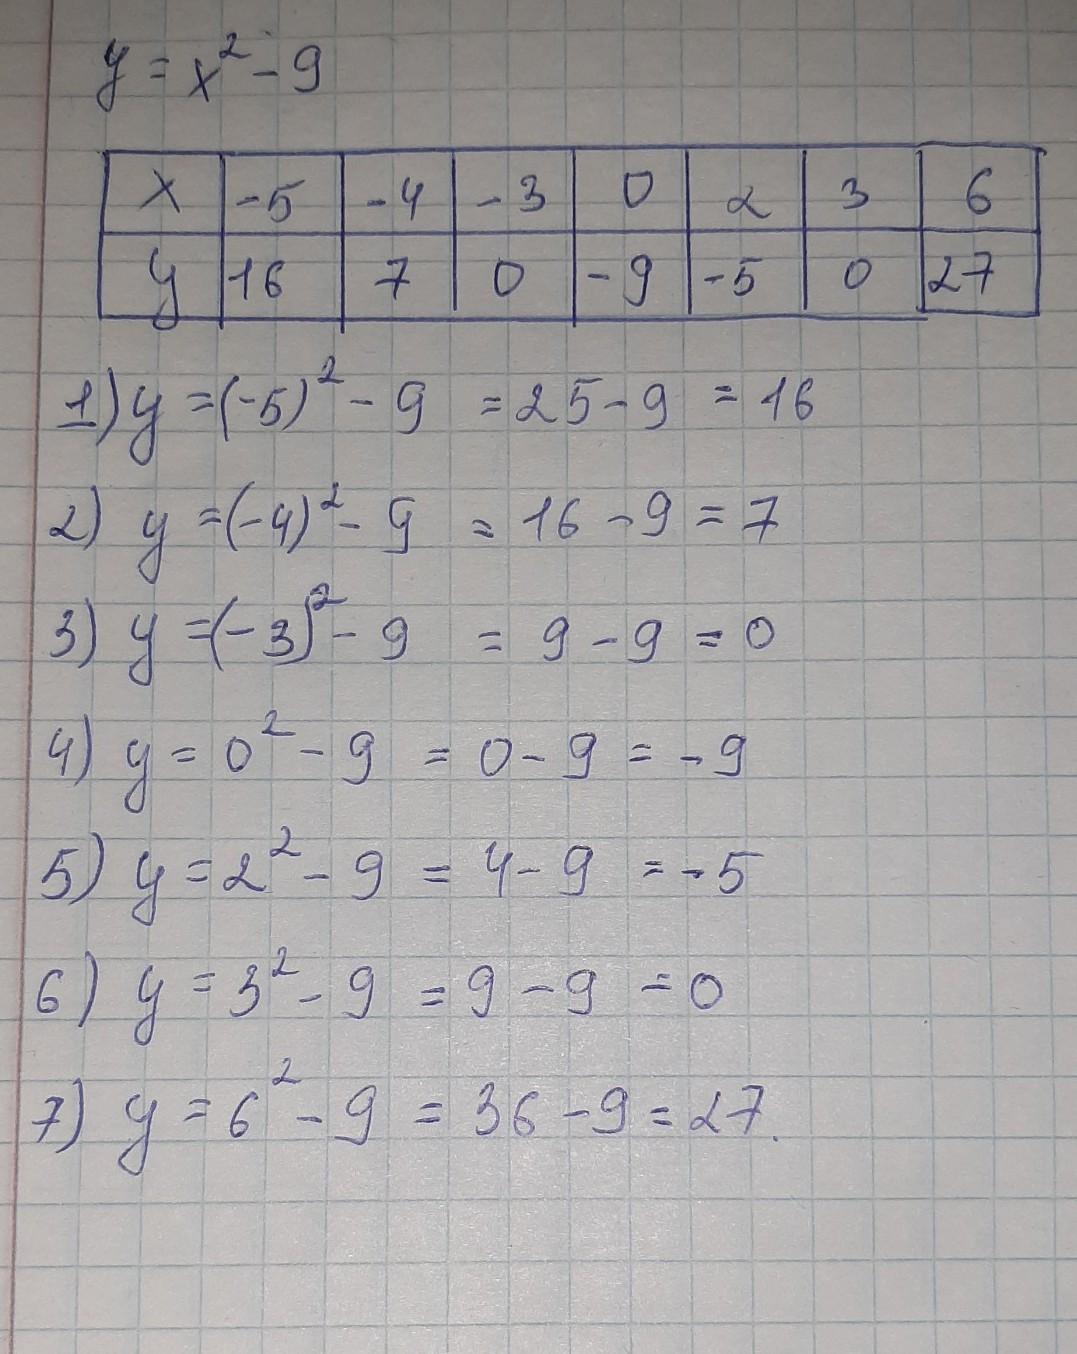 y = x² - 9
x -5 -4 -3 0 2 3 6
y 16 7 0 -9 -5 0 27
1) y = (-5)² - 9 = 25 - 9 = 16
2) y = (-4)² - 9 = 16 - 9 = 7
3) y = (-3)² - 9 = 9 - 9 = 0
4) y = 0² - 9 = 0 - 9 = -9
5) y = 2² - 9 = 4 - 9 = -5
6) y = 3² - 9 = 9 - 9 = 0
7) y = 6² - 9 = 36 - 9 = 27.